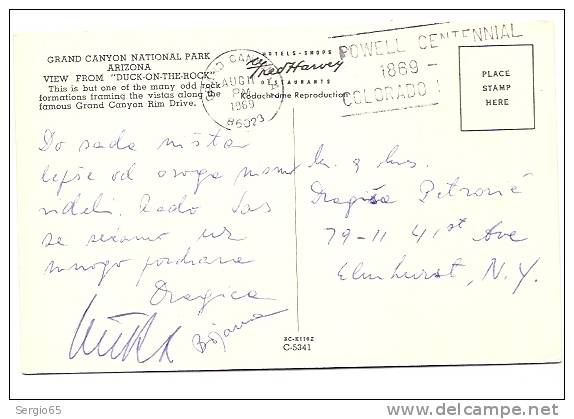 GRAND CANYON NATIONAL PARK
ARIZONA
VIEW FROM "DUCK-ON-THE-ROCK"
This is but one of the many odd rock
formations framing the vistas along the
famous Grand Canyon Rim Drive.
HOTELS-SHOPS
Fred Harvey
RESTAURANTS
Kodachrome Reproduction
AUG 11
PM
1969
86023
POWELL CENTENNIAL
1869 -
COLORADO
PLACE
STAMP
HERE
Do sada ništa
lepše od ovoga nismo
videli. Rado Vas
se sećamo uz
mnogo pozdrava
Dragica
Bojana
Mr. & Mrs.
Dragiša Petrović
79-11 41st Ave
Elmhurst, N.Y.
3C-K1162
C-5341
Sergio65
delcampe.net